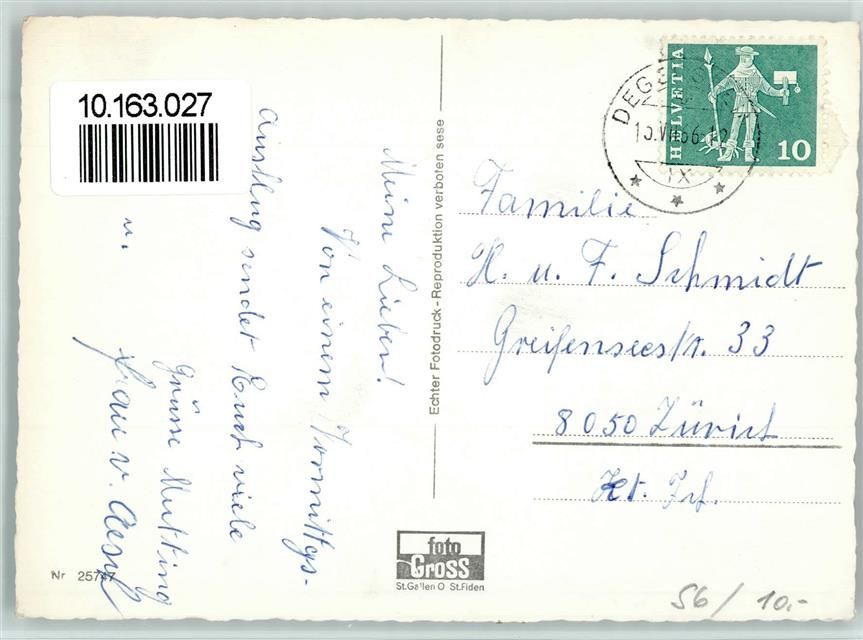 10.163.027
Meine Lieben!
Von einem Vormittgs-
Ausflug sendet Euch viele
Grüsse Mutting
u.
Frau v. Aesch
Echter Fotodruck - Reproduktion verboten sese
Nr 25747
foto
Gross
St.Gallen O St.Fiden
HELVETIA
10
IX
Familie
H. u. F. Schmidt
Greifenseestr. 33
8050 Zürich
Kt. Zch.
56/10.-